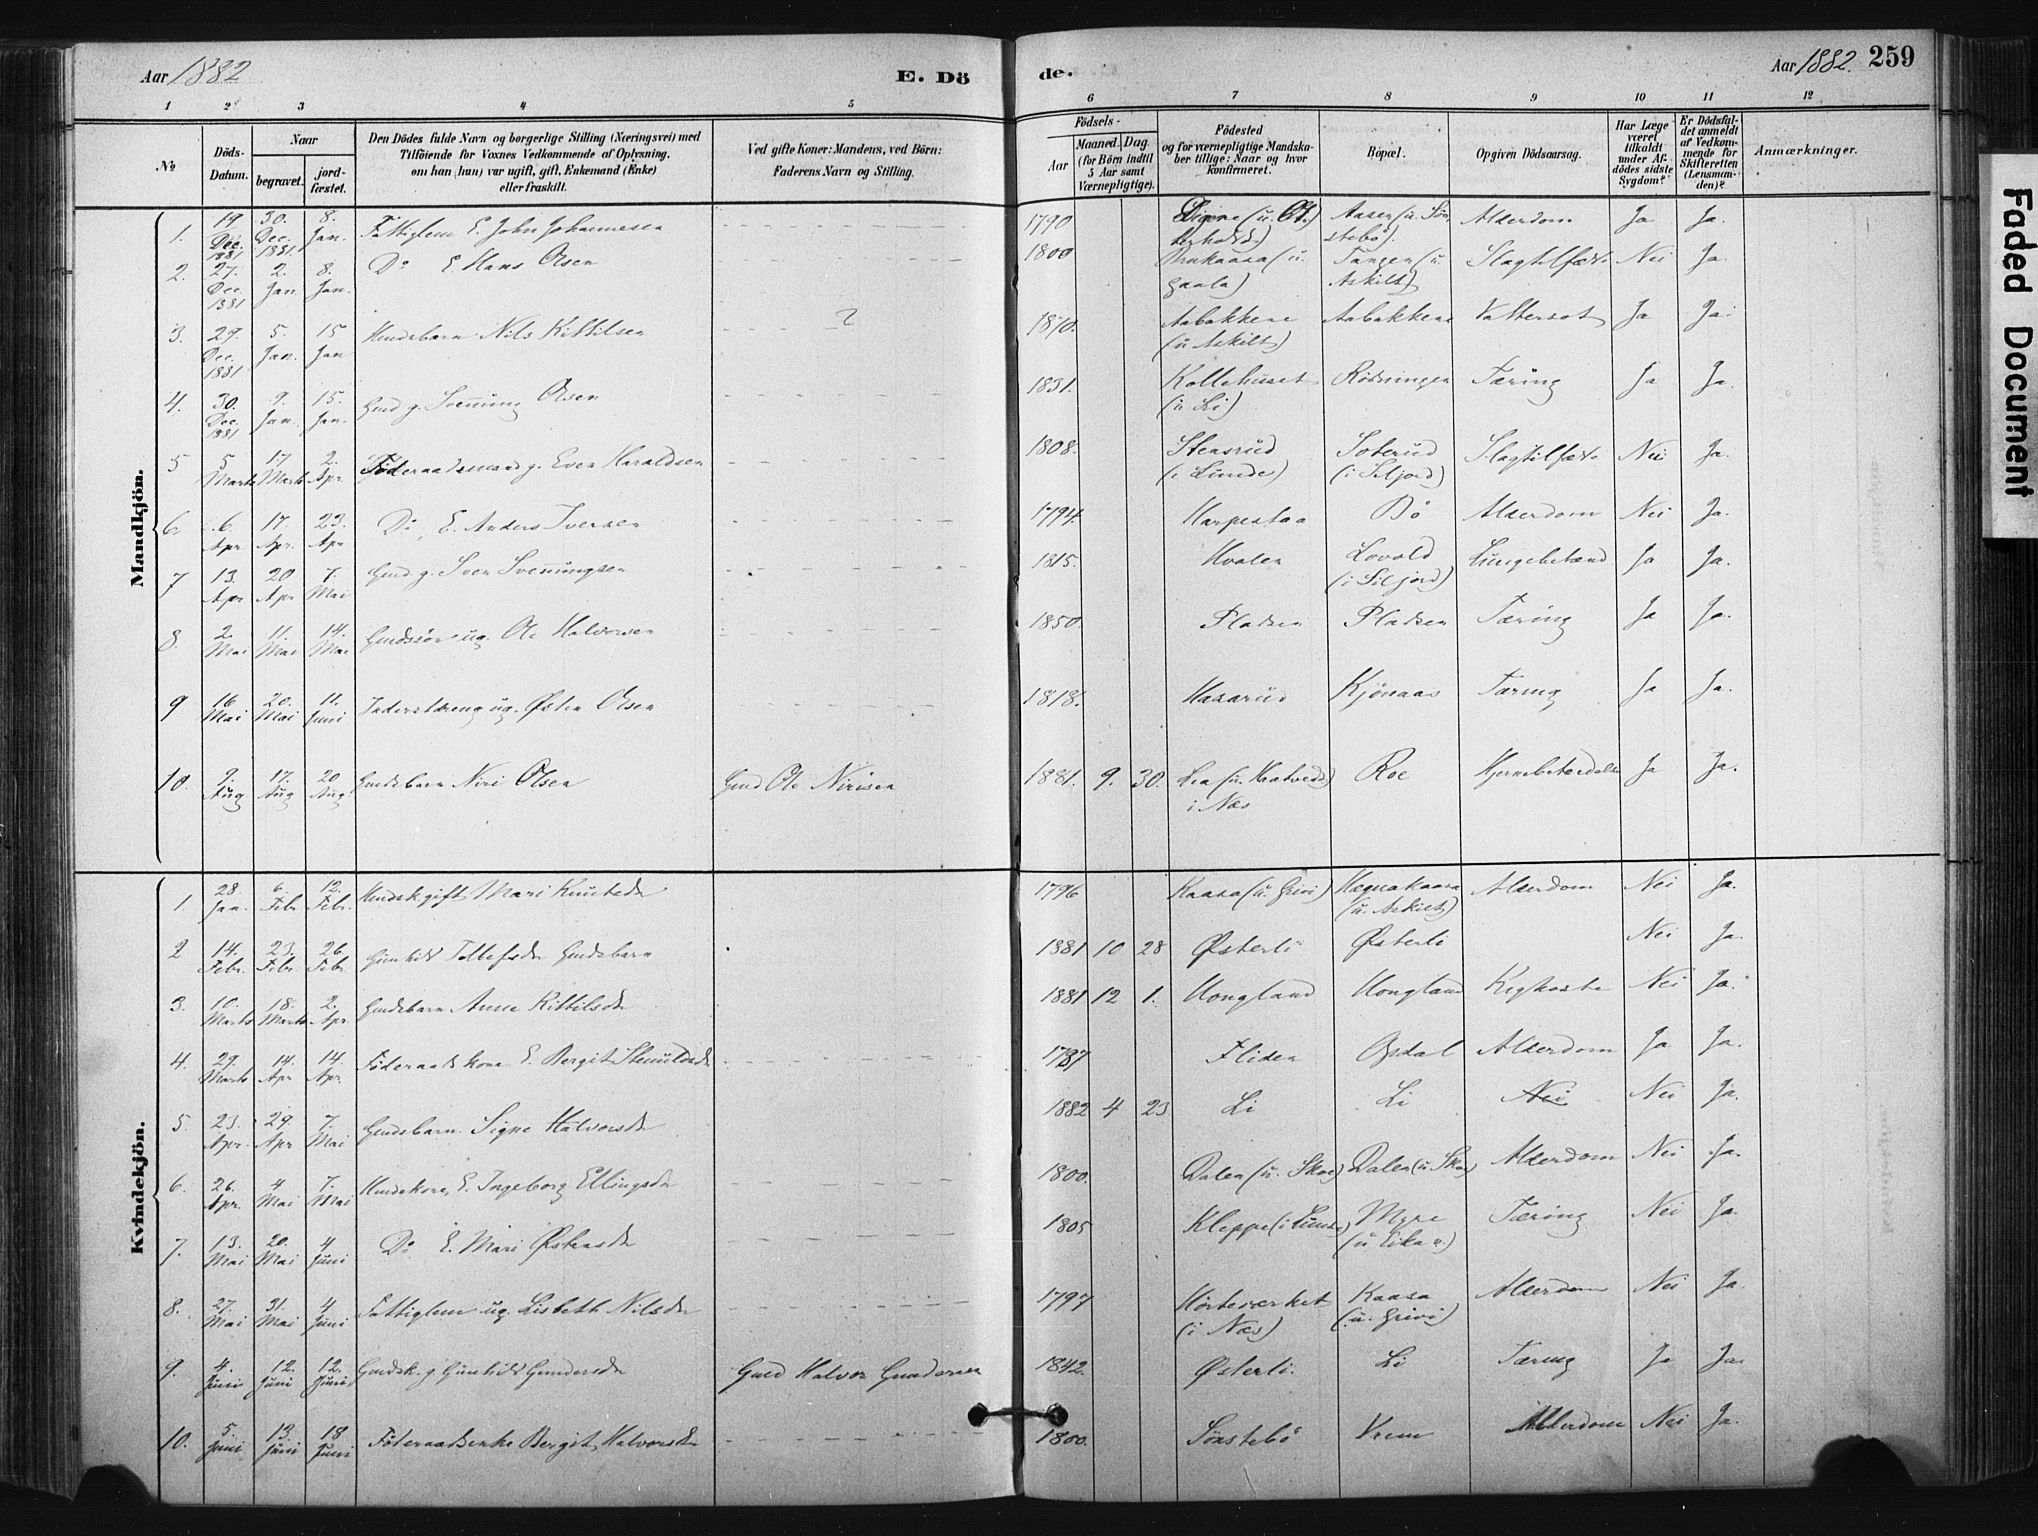 Aar 1882
E. Dö
de.
Aar 1882. 259
1 2 3 4 5 6 7 8 9 10 11 12
No
Döds-Datum.
Naar
begravet.
jord-fæstet.
Den Dödes fulde Navn og borgerlige Stilling (Næringsvei) med
Tilföiende for Voxnes Vedkommende af Oplysning,
om han (hun) var ugift, gift, Enkemand (Enke)
eller fraskilt.
Ved gifte Koner: Mandens, ved Börn:
Faderens Navn og Stilling.
Födsels-
Aar
Maaned. Dag.
(for Börn indtil
5 Aar samt
Værnepligtige).
Födested
og for værnepligtige Mandska-
ber tillige: Naar og hvor
konfirmeret.
Böpæl.
Opgiven Dödsaarsag.
Har Læge
været
tilkaldt
under Af-
dödes sidste
Sygdom?
Er Dödsfal-
det anmeldt
af Vedkom-
mende for
Skifteretten
(Lensman-
den)?
Anmærkninger.
Mandkjön.
1. 19 Dec. 1881 30. Dec. 1881. 8. Jan. Fattiglem E. John Johannesen 1790 Aasen (u. Sönstebö). Alderdom Ja Ja.
2. 27. Dec. 1881 2. Jan 8. Jan. Do E Hans Olsen 1800 Brukaasa (u. Gaala) Tangen (u. Askilt) Slagtilfælde Nei Ja.
3. 29. Dec. 1881 5. Jan. 15 Jan Husdsbarn Nils Kittilsen ? 1870. Aabakkene (u Askilt) Aabakkene Vattersot Ja Ja.
4. 30. Dec. 1881 9. Jan. 15. Jan. Gmd g. Svenning Olsen 1831. Kollehuset (u Li) Rödningen Tæring Ja Ja.
5 5 Marts 17 Marts 2. Apr Föderaadsmand g. Even Haraldsen 1808. Stensrud (i Lunde) Soterud (i Siljord) Slagtilfælde Nei Ja.
6. 6. Apr 17. Apr. 23. Apr Do, E. Anders Iversen 1794. Harpestaa Bö Alderdom Nei Ja.
7 13. Apr 20 Apr 7. Mai Gmd g. Sven Svenningsen 1815. Hvalen Lovald (i Siljord) Lungebetænd Ja Ja.
8. 2. Mai 11. Mai 14. Mai Gmdssön ug. Ole Halvorsen 1850 Pladsen Pladsen Tæring Ja Ja.
9 16 Mai 20. Mai 11. Juni Inderst ug. Østen Olsen 1818. Hasarud Kjönaas Tæring Ja Ja.
10. 9. Aug 17. Aug 20 Aug Gmdsbarn Niri Olsen Gmd Ole Nirisen 1881. 9. 30. Lia (u. Haatvedt) i Næs Roe Hjernebetændelse Ja Ja.
Kvindekjön.
1. 28. Jan. 6. Febr 12. Febr. Husmdsk gift Mari Knutsdr 1796 Kaasa (u. Grivi) Hægnakaasa (u. Askilt) Alderdom Nei Ja.
2 14. Febr. 23. Febr. 26. Febr Gunhild Tollefsdr Gmdsbarn 1881 10 28 Østerli Østerli Nei Ja.
3. 10. Marts 18. Marts 2. Apr. Gmdsbarn Anne Kittilsdr 1881 12 1. Uongland Uongland Kighoste Nei Ja.
4. 29. Marts 14. Apr 14. Apr. Föderaadskone E. Bergit Stenulsdr 1787 Fliden Opdal Alderdom Ja Ja.
5. 23. Apr. 29. Apr 7. Mai Gmdsbarn Signe Halvorsdr 1882 4 23 Li Li Nei Nei Ja.
6. 26. Apr. 4 Mai 7. Mai Husmdskone, E. Ingeborg Ellingsdr 1800. Dalen (u. Skoe) Dalen (u. Skoe) Alderdom Nei Ja.
7. 13. Mai 20. Mai 4 Juni Do E. Mari Østensdr 1805 Kleppe (i Lunde) Myre (u Eika n.) Tæring Nei Ja.
8. 27. Mai 31. Mai 4 Juni Fattiglem ug. Lisbeth Nilsdr 1797 Hörteværket (i Næs) Kaasa (u. Grivi) Alderdom Nei Ja.
9. 4. Juni 12. Juni 12. Juni Gmdsk. g Gunhild Gundersdr Gmd Halvor Gundersen 1842. Østerli. Li Tæring Ja Ja.
10. 5. Juni 13. Juni 18 Juni Föderaadsenke Bergit Halvorsdr 1800. Sönstebö Vrem Alderdom Nei Ja.
Faded Document